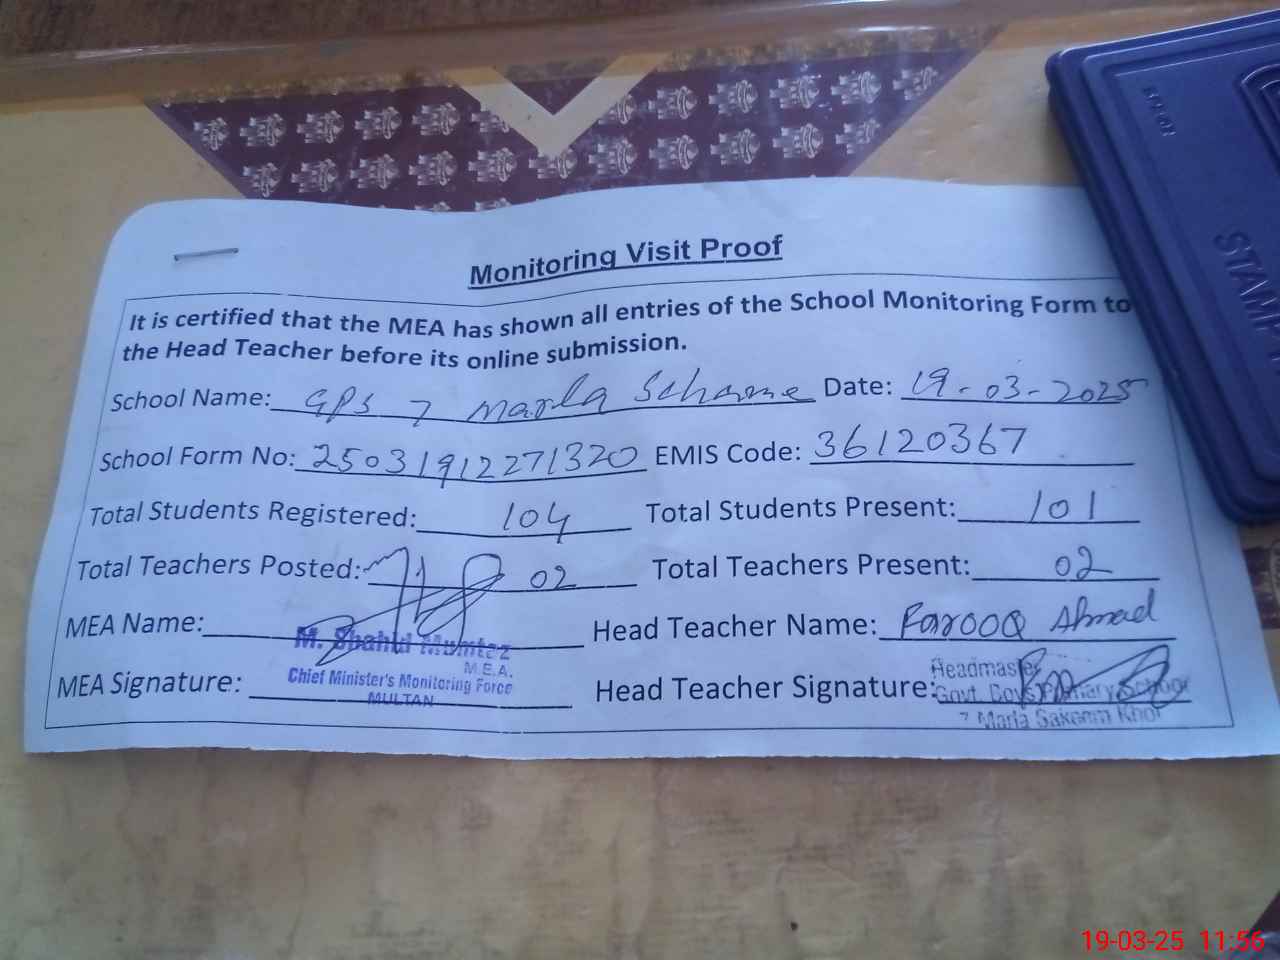 Monitoring Visit Proof
It is certified that the MEA has shown all entries of the School Monitoring Form to
the Head Teacher before its online submission.
School Name: GPS 7 Marla Schame Date: 19-03-2025
School Form No: 25031912271320 EMIS Code: 36120367
Total Students Registered: 104 Total Students Present: 101
Total Teachers Posted: 02 Total Teachers Present: 02
MEA Name: Head Teacher Name: Farooq Ahmad
M. Shahid Mumtaz
M.E.A.
Chief Minister's Monitoring Force
MULTAN
MEA Signature: Head Teacher Signature:
Headmaster
Govt. Boys Primary School
7 Marla Sakeem Khor
STAMP
19-03-25 11:56